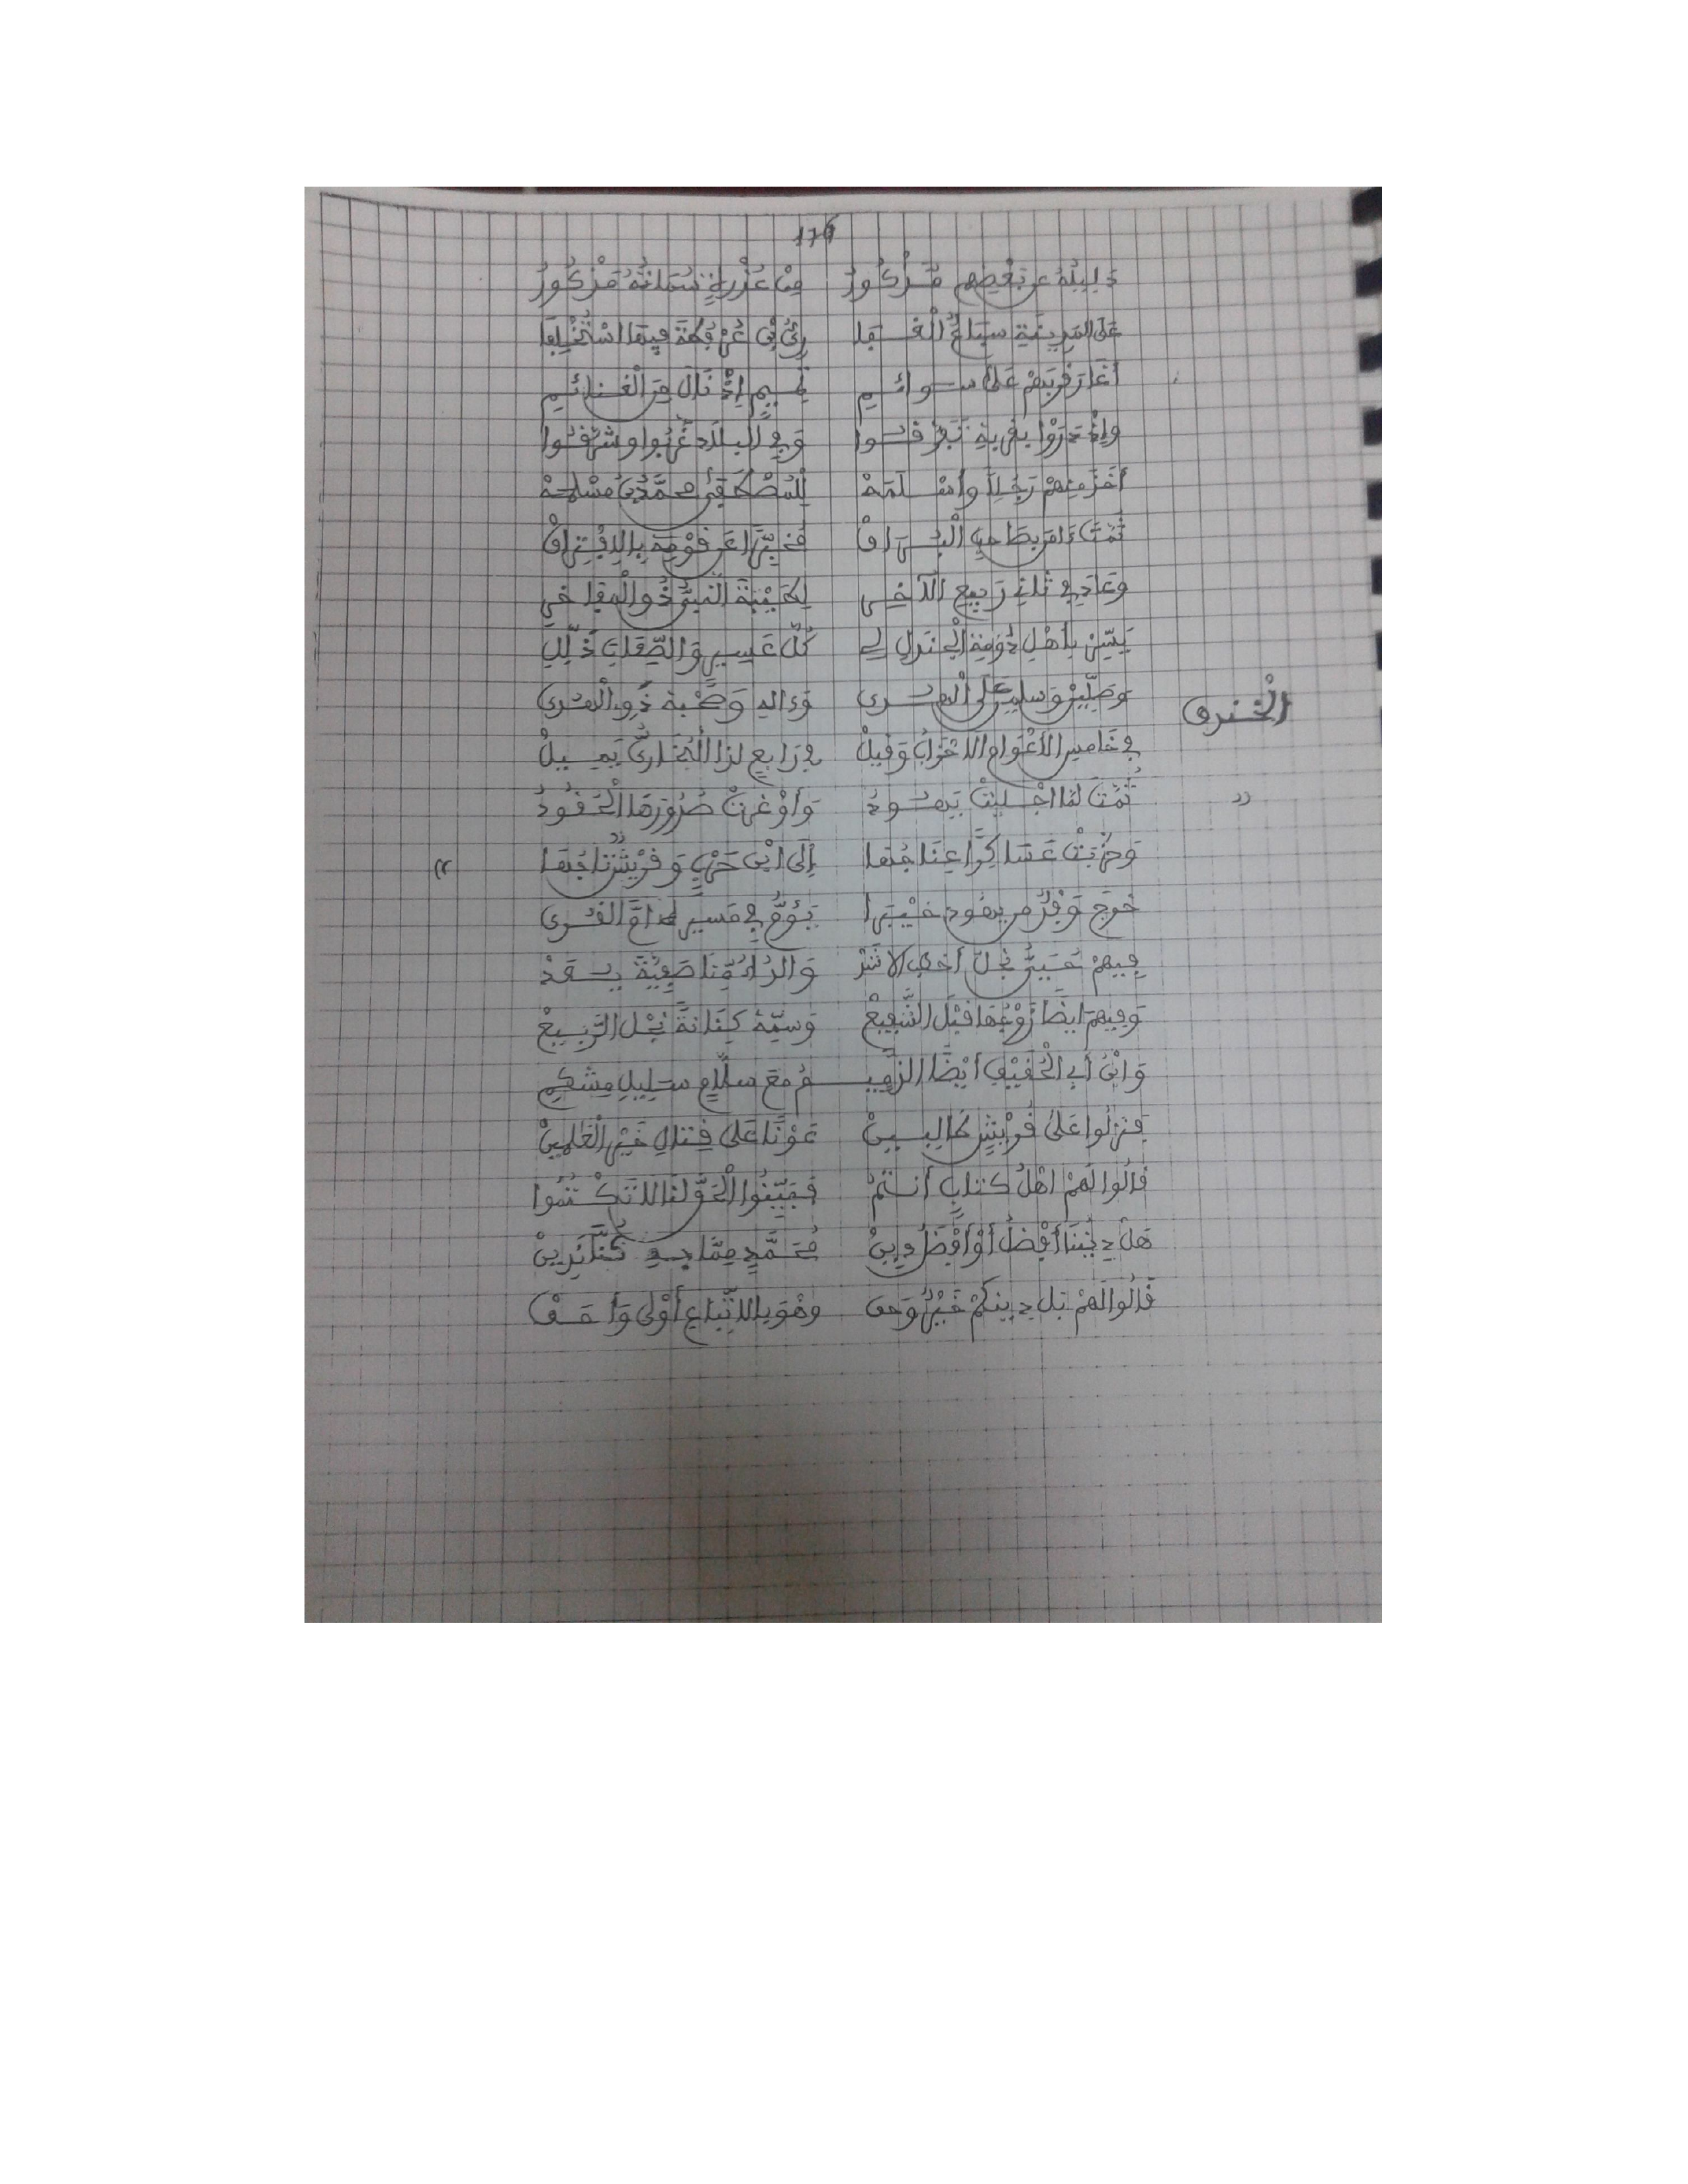 176
دَلِيلُهُ عن بَعْضِهِم مَذْكُورُ مِنْ عُذْرَةٍ مَذْكُورُ
عَلَى الْمَدِينَةِ سِبَاعُ الْغِفَا رِيُّ بْنُ عُرْفُطَةَ فِيهَا اسْتُخْلِفَا
أَغَارَ قُرْبَهُمْ عَلَى سَوائِمِ لَهُمِ إِذْ نَالَ مِنَ الْغَنائِمِ
وإِذْ دَرَوْا بِقُرْبِهِ تَفَرَّقُوا وَفِي الْبِلَادِ غَرَّبُوا وشَرَّقُوا
أَخَذَ مِنْهُمْ رَجُلاً وأَسْلَمَهْ لِلْمُصْطَفَى مُحمَّدُ بنُ مَسْلَمَهْ
ثُمَّتَ الْبُرَاقْ قَوْمِهِ بِالِافْتِرَاقْ
وعَادَ فِي ثَانِي رَبِيعِ الآخِرِ لِطَيْبَةَ النَّبِيُّ ذُو الْمَفَاخِرِ
يَسِّرْ بِأَهْلِ دُومَةِ الْجَنْدَلِ لِي كُلَّ عَسِيرٍ وَالصِّعَابَ ذَلِّلِ
وَصَلِّيَنْ وَسلِّمَنْ عَلَى الْهُدَى وَءَالِهِ وَصَحْبِهِ ذَوِي الْهُدَى
الْخَندق
فِي خَامِسِ الأَعْوَامِ الاَحْزَابُ وَقِيلْ فِي رَابِعٍ لِذَا الْبُخَارِيُّ يَمِيلْ
ثُمَّتَ لَمَّا أُجْلِيَتْ يَهُودُ وَأَوْغَرَتْ صُدُورَهَا الْحُقُودُ
وَحَزَّبَتْ عَسَاكِرًا عِنَاجُهَا إِلَى ابْنِ حَرْبٍ وَقُرَيْشٌ تَاجُهَا
خَرَجَ وَفْدٌ مِن يهُودِ خَيْبَرَا يَؤُمُّ فِي مَسِيرِهِ أُمَّ الْقُرَى
فِيهِمْ حُيَيٌّ نَجْلُ أخطب الاشَدْ وَالِدُ أُمِّنَا صَفِيَّةَ
وَفِيهِمَ ايْضًا زَوْجُهَا قَبْلَ الشَّفِيعْ وَسَمِّهِ كِنَانَةً نَجْلَ الرَّبِيعْ
وَابْنُ أَبِي الْحُقَيْقِ أَيْضًا الزَّعِيـ ـمُ مَعَ سَلَّامٍ سَلِيلِ مِشْكَمِ
فَنَزَلُوا عَلَى قُرَيْشٍ طَالِبِينْ عَوْنًا عَلَى قِتَالِ خَيْرِ الْعَالَمِينْ
قَالُوا لَهُمْ اهْلُ كتابٍ أَنتُمُ فَبَيِّنُوا الْحَقَّ لَنَا لَا تَكْتُمُوا
هَلْ دِينُنَا أَفْضَلُ أَوْ أَفْضَلُ دِينْ مُحَمَّدٍ مِمَّا بِهِ كُنَّا نَدِينْ
قَالُوا لَهُمْ بَل دِينِكُمْ خَيْرٌ وَحَق وهْوَ بِالاتِّبَاعِ أَوْلَى وَأَحَقْ